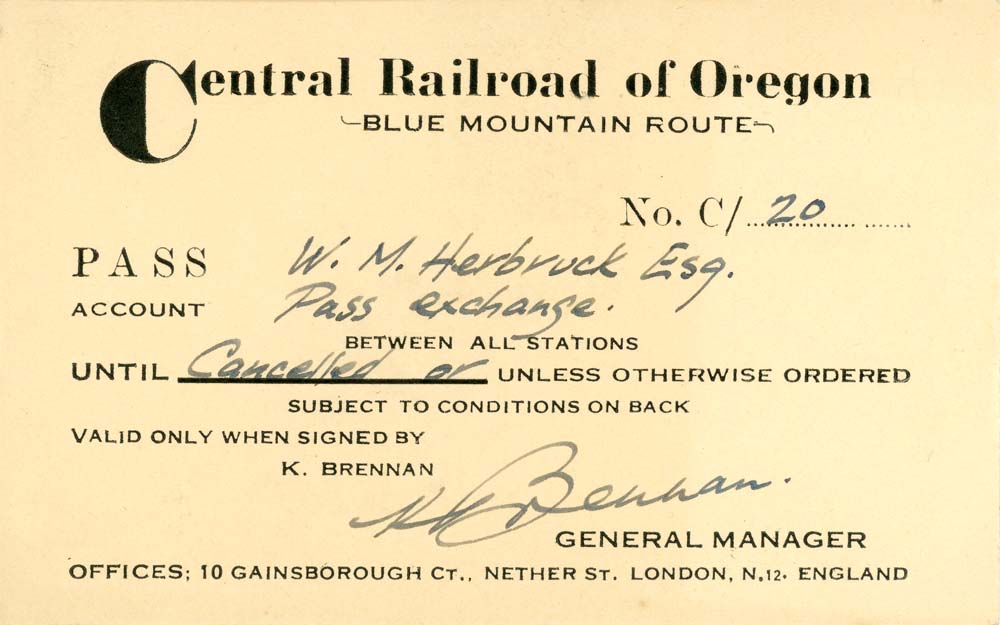 Central Railroad of Oregon
BLUE MOUNTAIN ROUTE
No. C/ 20
PASS W. M. Herbruck Esq.
ACCOUNT Pass exchange.
BETWEEN ALL STATIONS
UNTIL Cancelled or UNLESS OTHERWISE ORDERED
SUBJECT TO CONDITIONS ON BACK
VALID ONLY WHEN SIGNED BY
K. BRENNAN
K Brennan.
GENERAL MANAGER
OFFICES; 10 GAINSBOROUGH CT., NETHER ST. LONDON, N.12. ENGLAND